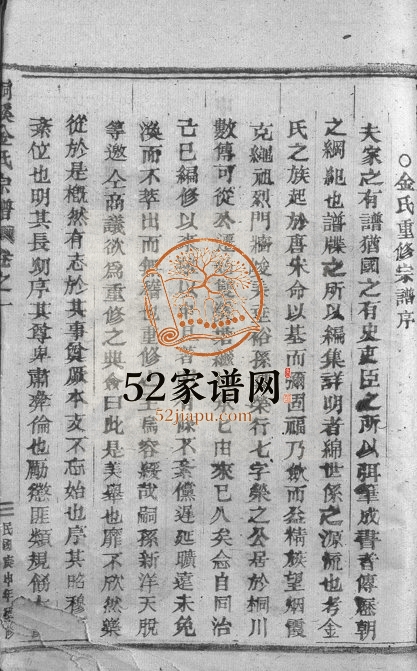 ○金氏重修宗譜序
夫家之有譜猶國之有史吏臣之所以珥筆成書者傳歷朝
之綱紀也譜牒之所以編集詳明者綿世係之源流也考金
氏之族起於再朱命以基而彌固碩乃歙而益精族望炳霞
克繩祖烈門牆俊 裕孫 榮行七字榮之公居於桐川
數傳可從 已由來已久矣念自同治
亡巳編修以 不案儻遲延曠遠未免
渙而不萃出而無 也重修 容綏哉嗣孫新洋天脫
等邀仝商議欲為重修之典僉曰此是美舉也靡不欣然樂
從於是概然有志於其事質厥本支不忘始也序其昭穆
素位也明其長幼序其尊卑肅彝倫也勵懲匪類規飭
桐溪金氏宗譜 卷之一
三
民國庚申年重修
52家谱网
52jiapu.com